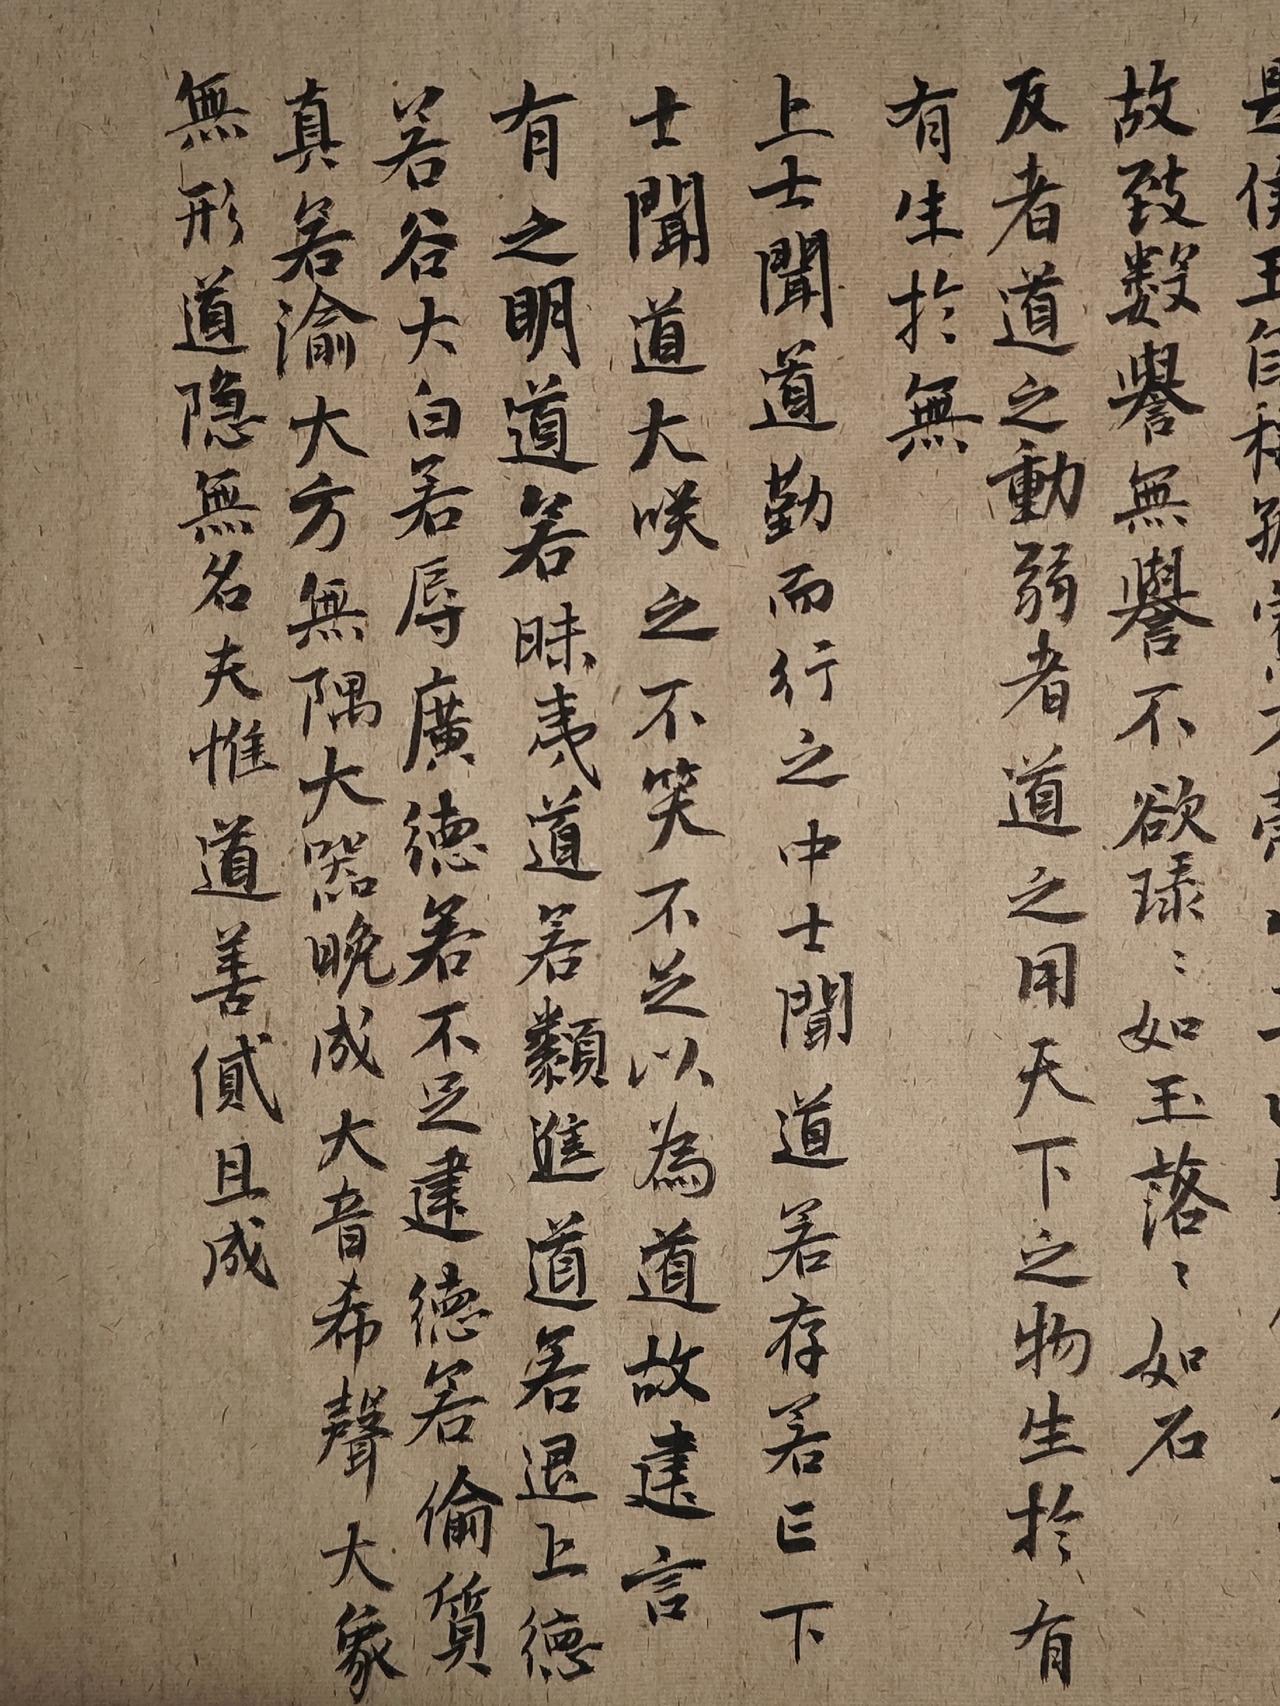 是侯王自稱孤寡不
故致數譽無譽不欲琭〻如玉落〻如石
反者道之動弱者道之用天下之物生於有
有生於無
上士聞道勤而行之中士聞道若存若亡下
士聞道大咲之不笑不足以為道故建言
有之明道若昧夷道若纇進道若退上德
若谷大白若辱廣德若不足建德若偷質
真若渝大方無隅大器晚成大音希聲大象
無形道隐無名夫惟道善貸且成